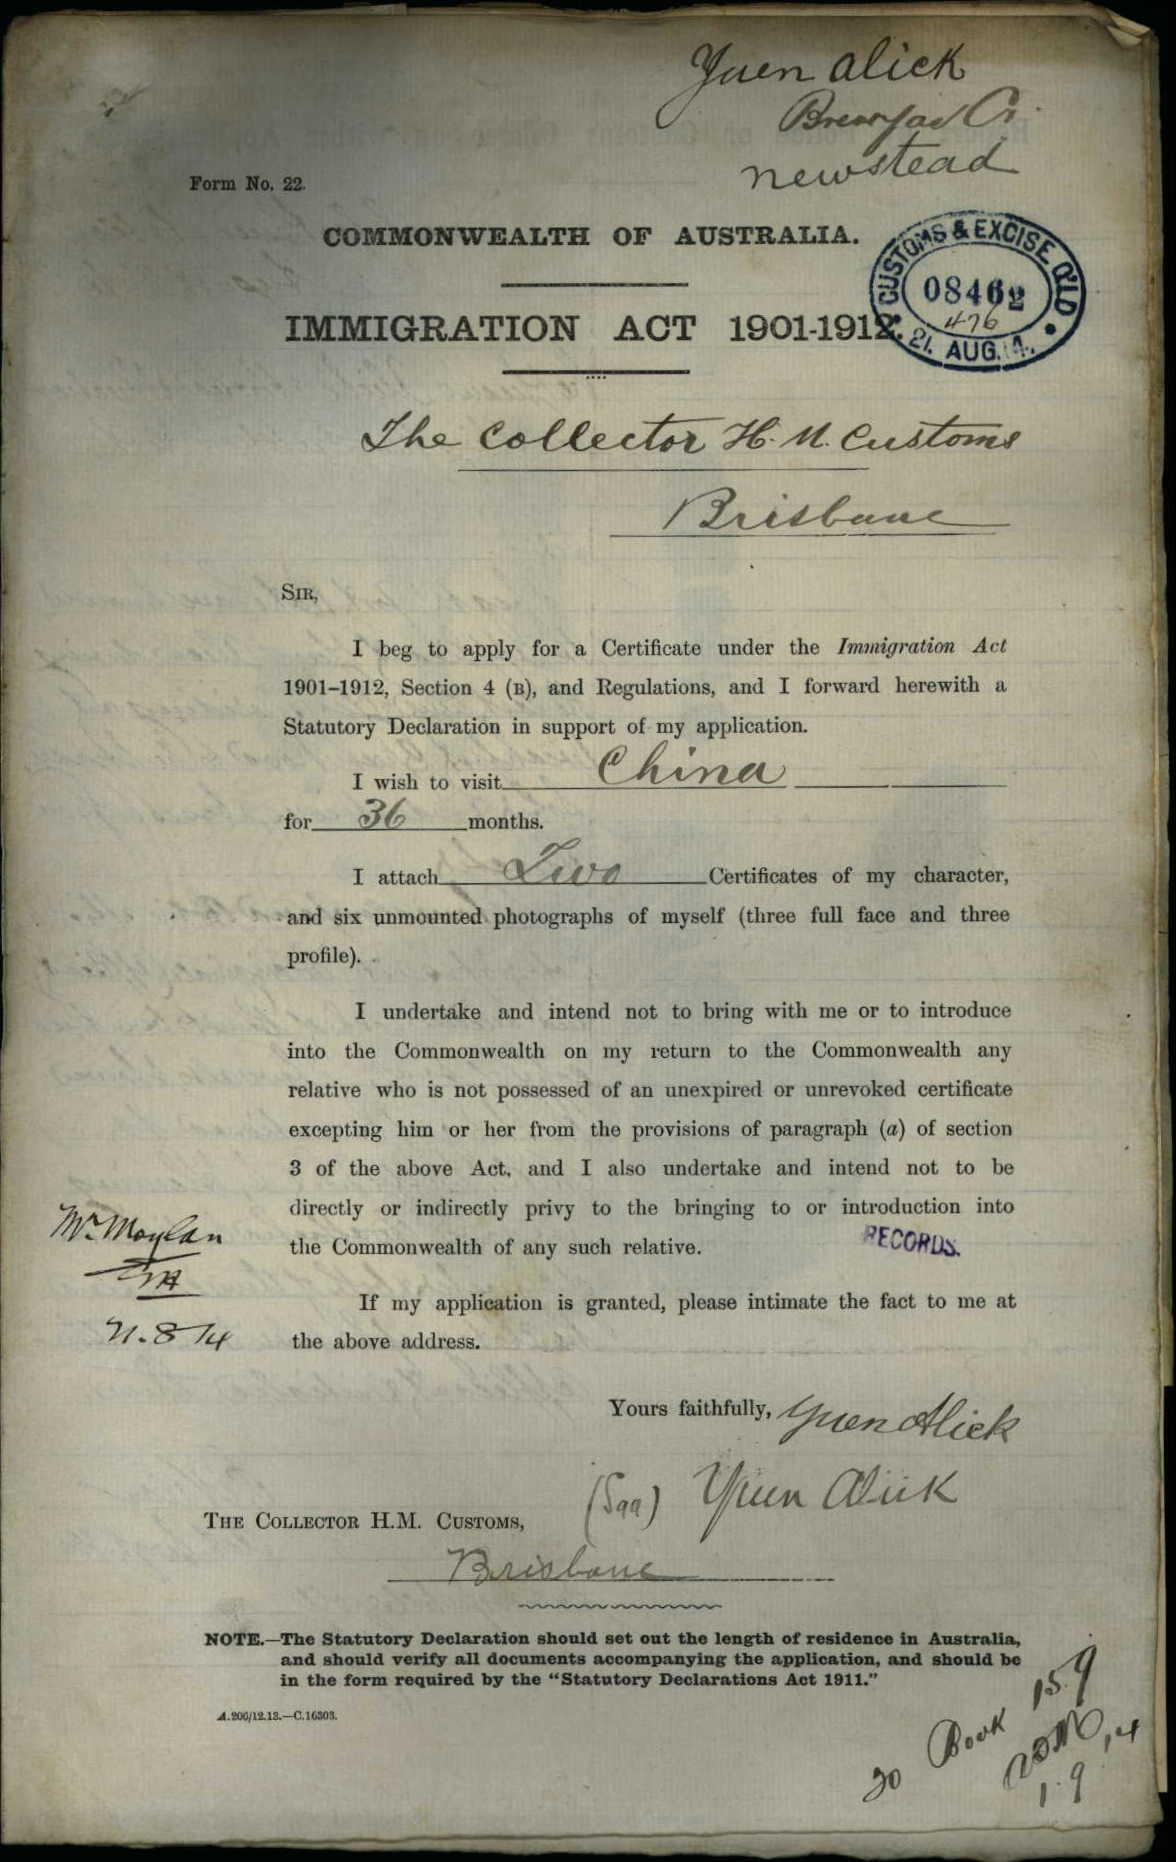 Yuen Alick
newstead
Form No. 22.
COMMONWEALTH OF AUSTRALIA.
CUSTOMS & EXCISE. Q'LD
08462
476
21. AUG. 14.
IMMIGRATION ACT 1901-1912.
The Collector H. M. Customs
Brisbane
SIR,
I beg to apply for a Certificate under the Immigration Act
1901-1912, Section 4 (B), and Regulations, and I forward herewith a
Statutory Declaration in support of my application.
I wish to visit China
for 36 months.
I attach Two Certificates of my character,
and six unmounted photographs of myself (three full face and three
profile).
I undertake and intend not to bring with me or to introduce
into the Commonwealth on my return to the Commonwealth any
relative who is not possessed of an unexpired or unrevoked certificate
excepting him or her from the provisions of paragraph (a) of section
3 of the above Act, and I also undertake and intend not to be
directly or indirectly privy to the bringing to or introduction into
the Commonwealth of any such relative.
RECORDS.
Mr. Moylan
21.8.14
If my application is granted, please intimate the fact to me at
the above address.
Yours faithfully, Yuen Alick
Yuen Alick
THE COLLECTOR H.M. CUSTOMS,
Brisbane
NOTE.—The Statutory Declaration should set out the length of residence in Australia,
and should verify all documents accompanying the application, and should be
in the form required by the "Statutory Declarations Act 1911."
A.206/12.13.—C.16303.
20 Book 159
1.9.14